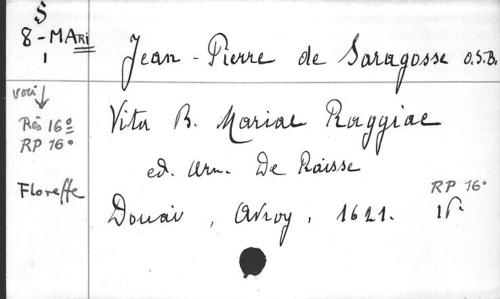 S
8 - MARi
1
Jean-Pierre de Saragosse O.S.B.
voir ↓
Rés 16º
RP 16º
Vita B. Mariae Raggiae
ed. Arn. De Raisse
Floreffe
Douai, Avroy, 1621.
RP 16º